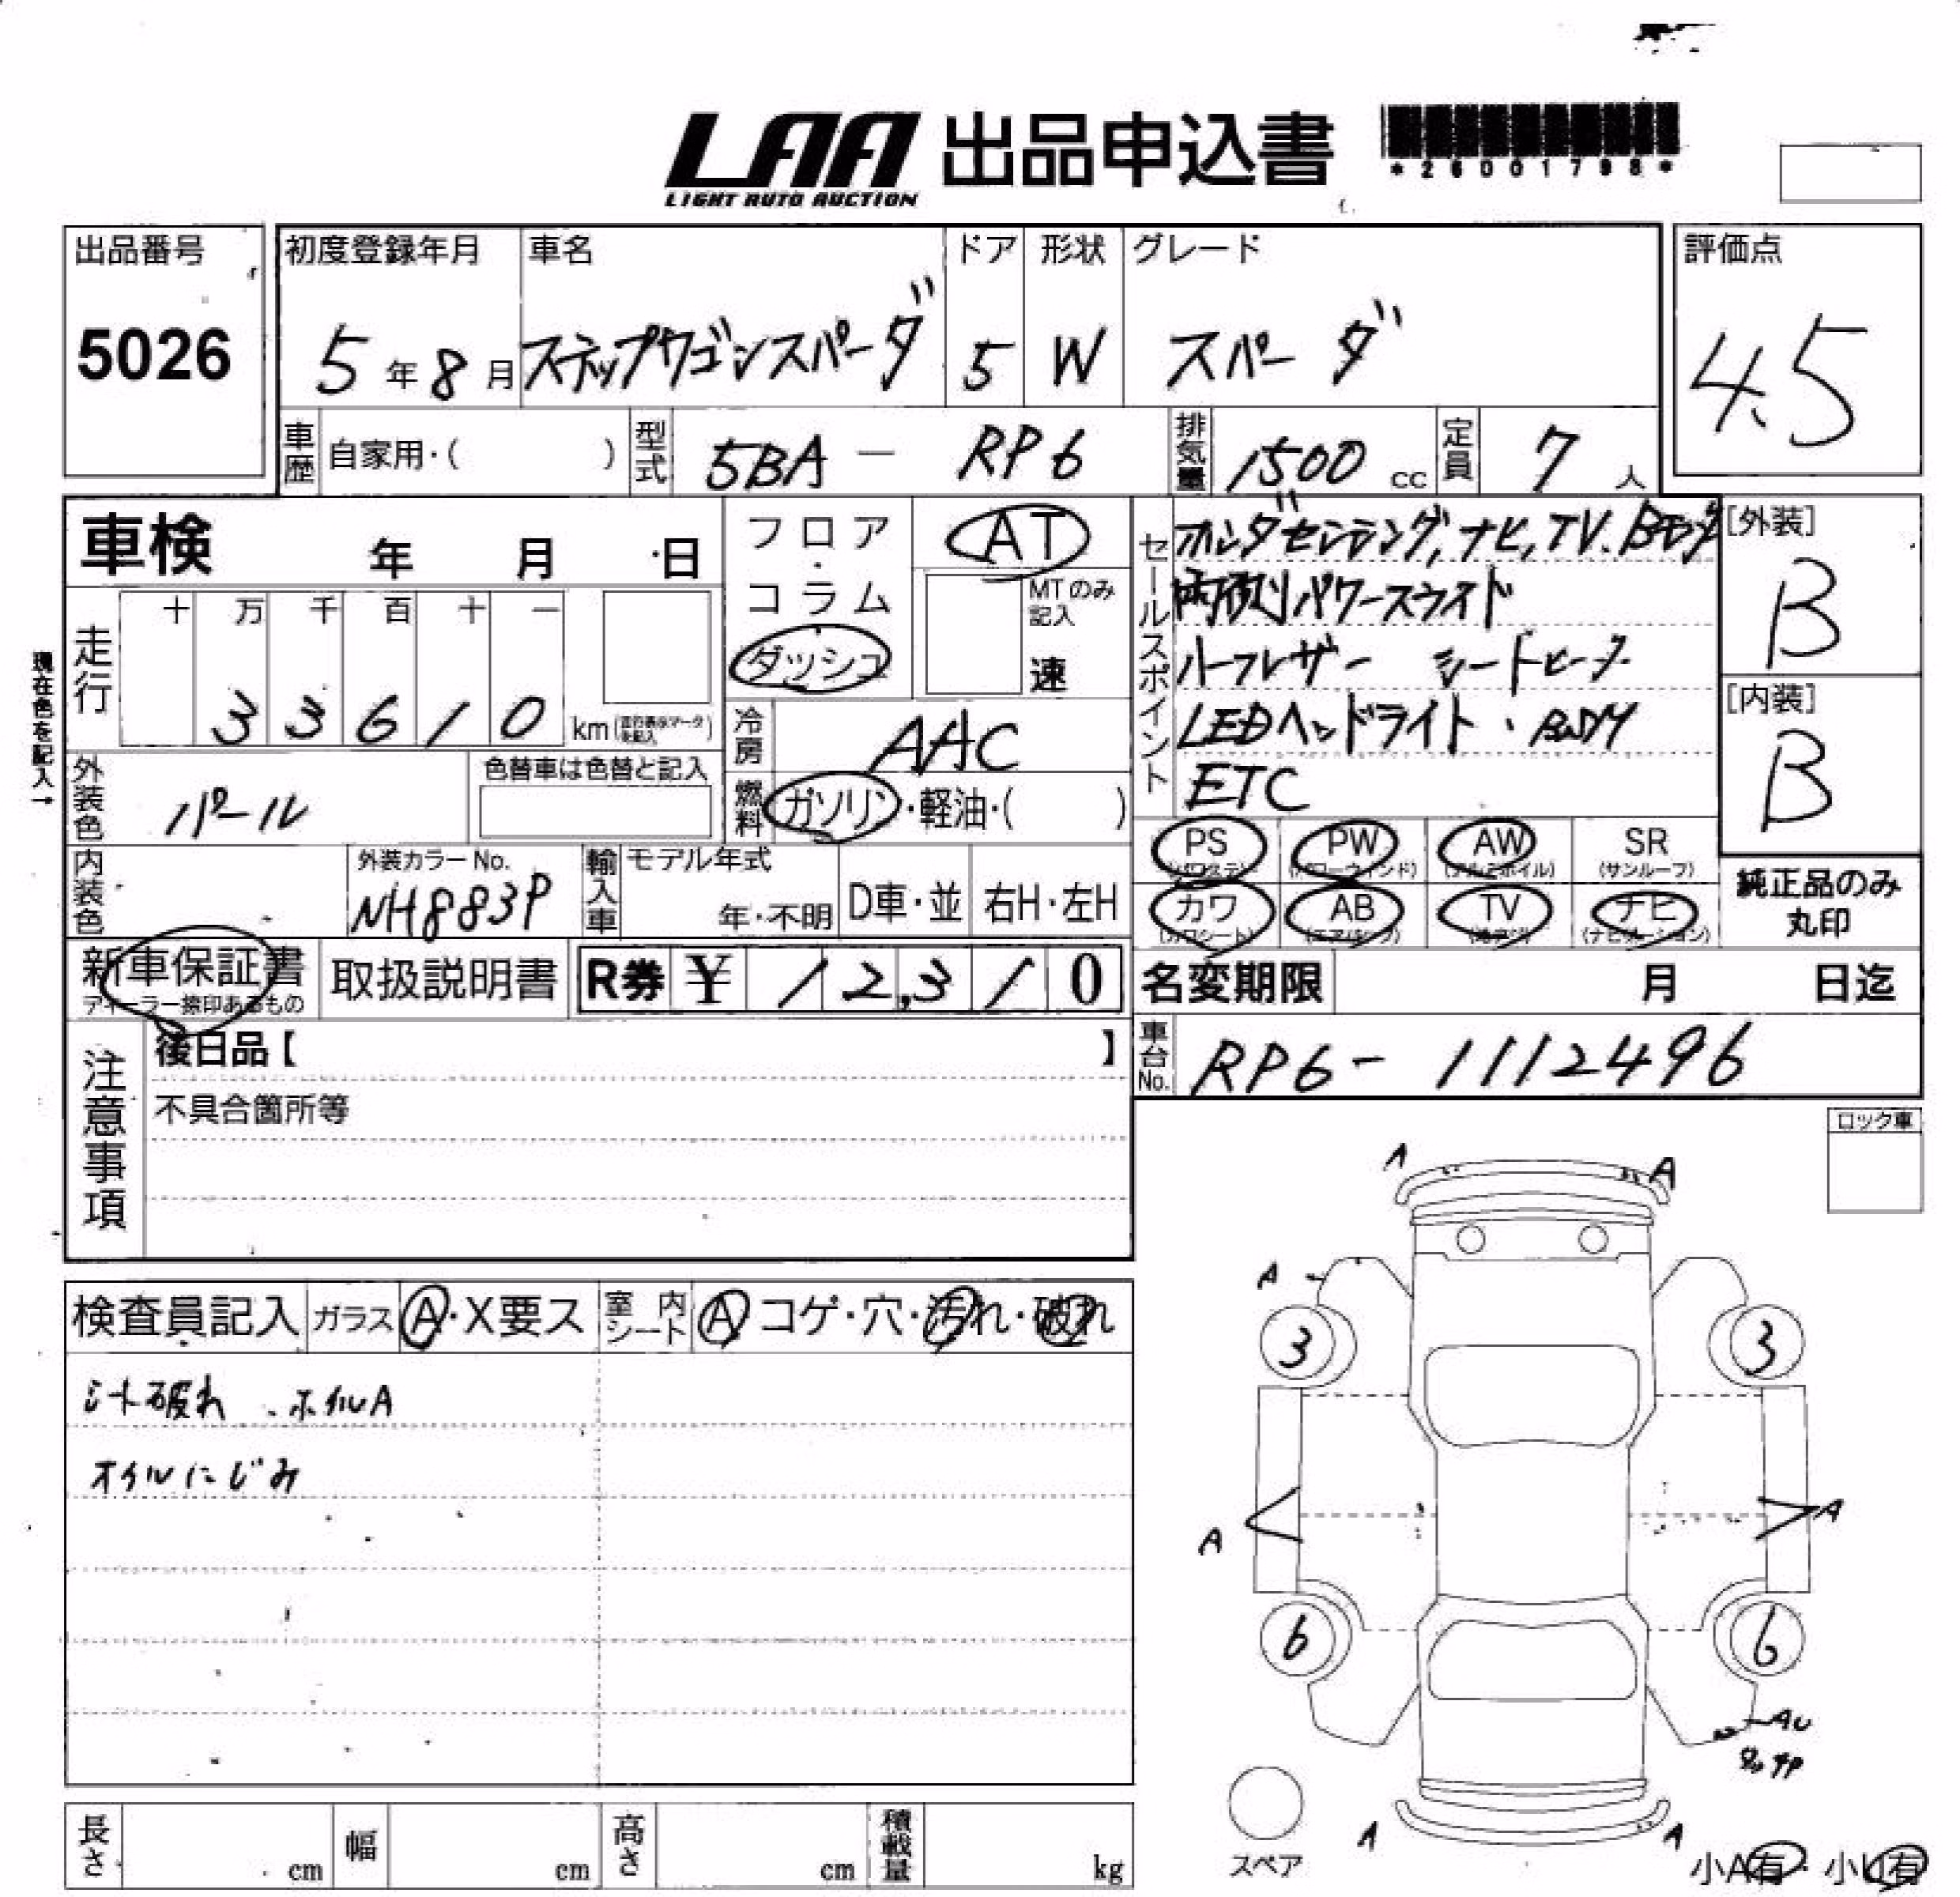 LAA 出品申込書
LIGHT AUTO AUCTION
*26001798*
出品番号
5026
初度登録年月 車名 ドア 形状 グレード
5年8月 ステップワゴンスパーダ 5 W スパーダ
評価点
4.5
車歴 自家用・( ) 型式 5BA - RP6 排気量 1500 cc 定員 7 人
車検 年 月 日
フロア・コラム
ダッシュ
AT
MTのみ記入
速
セールスポイント
ホンダセンシング, ナビ, TV, Bモニタ
両側パワースライド
ハーフレザー シートヒータ
LEDヘッドライト
ETC
[外装]
B
[内装]
B
現在色を記入→
走行
十 万 千 百 十 一
3 3 6 1 0 km
冷房 AAC
燃料 ガソリン・軽油・( )
外装色 パール
色替車は色替と記入
PS PW AW SR
(パワステ) (パワーウィンド) (アルミホイル) (サンルーフ)
カワ AB TV ナビ
(カワシート) (エアバック) (ナビゲーション)
純正品のみ
丸印
内装色
外装カラーNo.
NH883P
輸入車 モデル年式
年・不明 D車・並 右H・左H
新車保証書
ディーラー捺印あるもの
取扱説明書 R券 ¥ 12,310
名変期限 月 日迄
車台No. RP6-1112496
注意事項
後日品【 】
不具合箇所等
ロック車
検査員記入 ガラス A・X要ス 室内シート A コゲ・穴・汚れ・破れ
シート破れ、ホイルA
オイルにじみ
A A
A
3 3
A A
6 6
AU
A A
スペア
小A有・小U有
長さ cm 幅 cm 高さ cm 積載量 kg